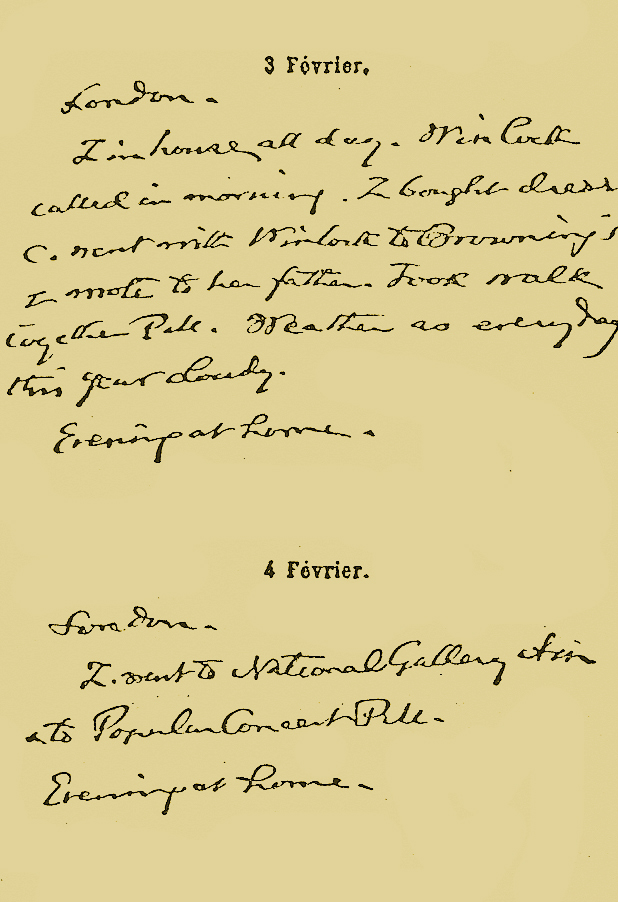 3 Février.
London.
Z in house all day. Winlock
called in morning. Z bought dress
C. went with Winlock to Browning's
Z wrote to her father. Took walk
together P.M. Weather as everyday
this year cloudy.
Evening at home.
4 Février.
London.
Z. went to National Gallery A.M.
& to Popular Concert P.M.
Evening at home.